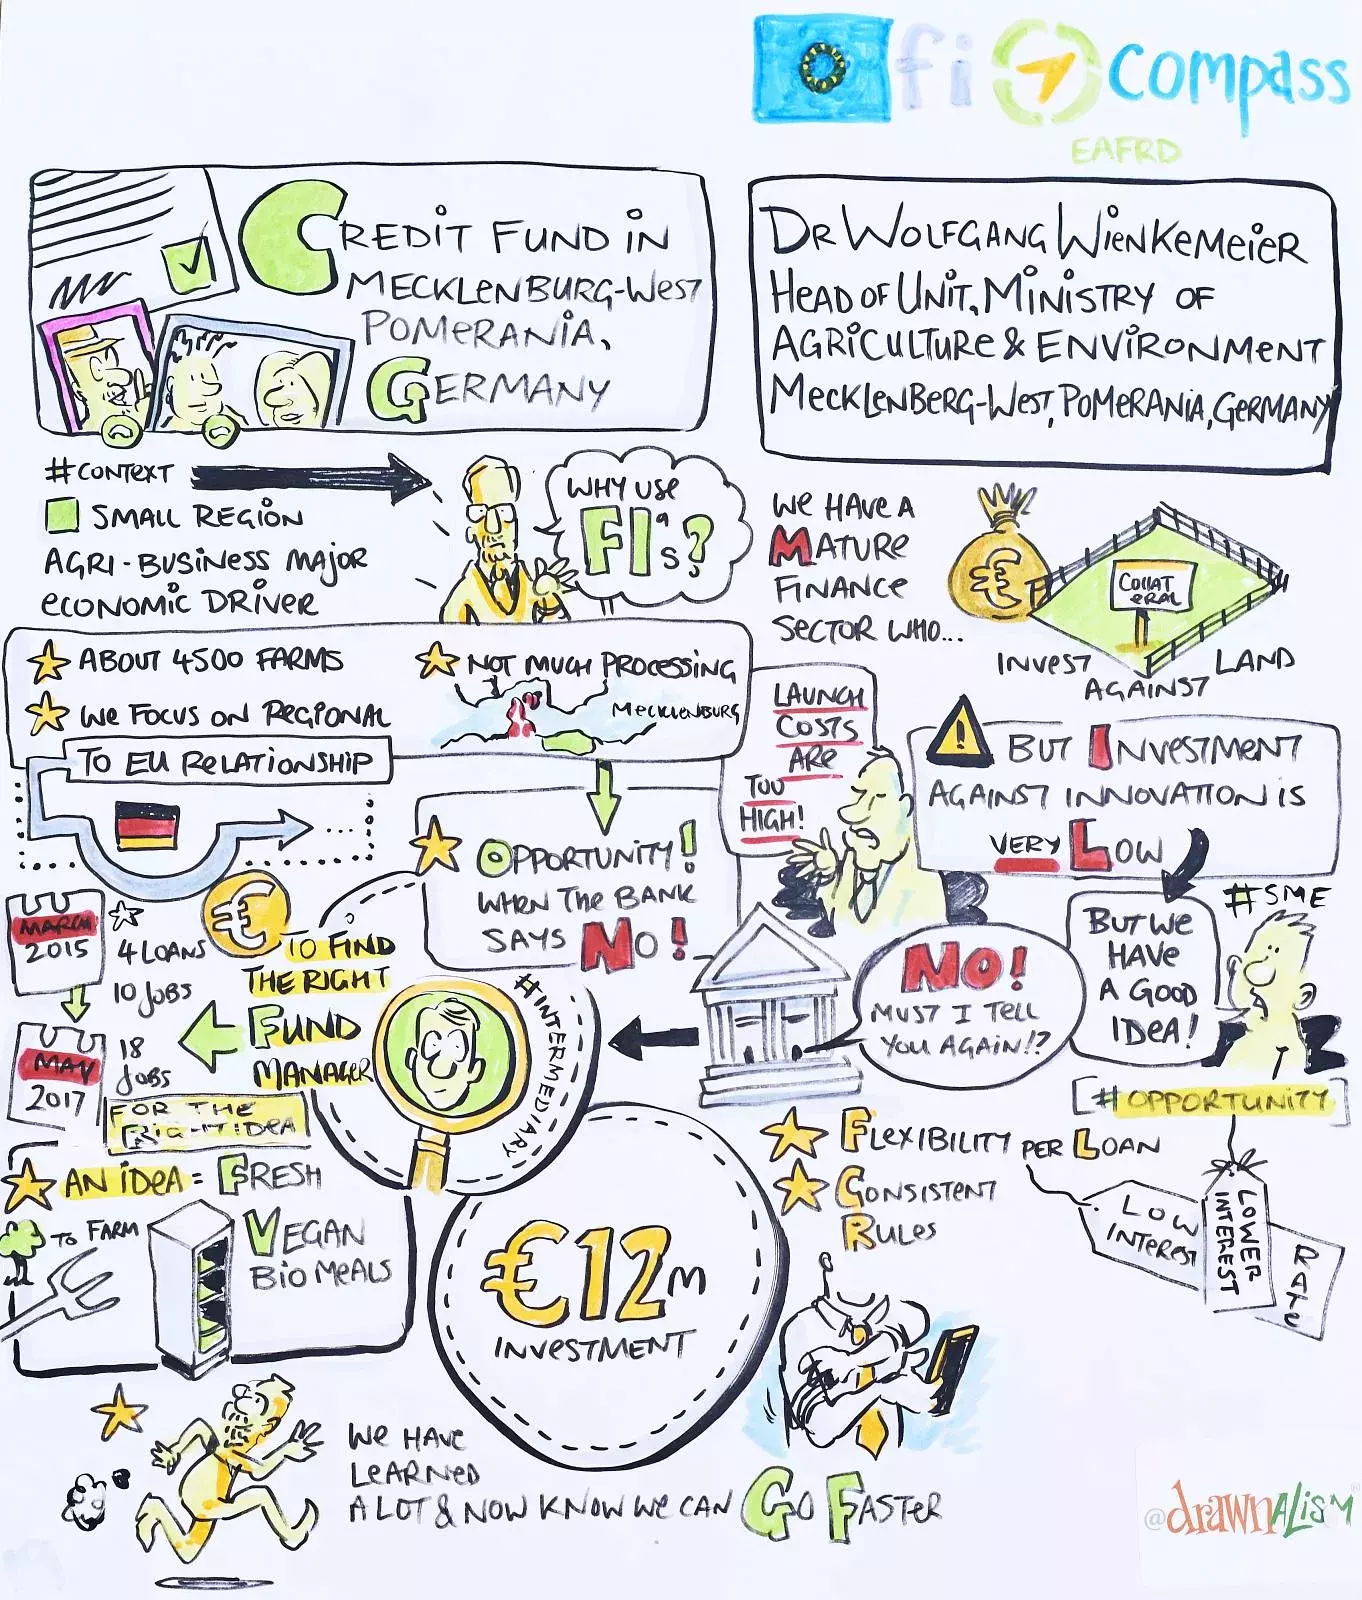 fi compass
EAFRD
CREDIT FUND IN
MECKLENBURG-WEST
POMERANIA,
GERMANY
DR WOLFGANG WIENKEMEIER
HEAD OF UNIT, MINISTRY OF
AGRICULTURE & ENVIRONMENT
MECKLENBERG-WEST, POMERANIA, GERMANY
#CONTEXT
SMALL REGION
AGRI-BUSINESS MAJOR
ECONOMIC DRIVER
WHY USE
FI's?
WE HAVE A
MATURE
FINANCE
SECTOR WHO...
€
COLLAT
ERAL
INVEST
AGAINST
LAND
ABOUT 4500 FARMS
WE FOCUS ON REGIONAL
TO EU RELATIONSHIP
NOT MUCH PROCESSING
MECKLENBURG
LAUNCH
COSTS
ARE
TOO
HIGH!
! BUT INVESTMENT
AGAINST INNOVATION IS
VERY LOW
OPPORTUNITY!
WHEN THE BANK
SAYS NO!
#SME
BUT WE
HAVE
A GOOD
IDEA!
[#OPPORTUNITY]
NO!
MUST I TELL
YOU AGAIN!?
#INTERMEDIARY
€
TO FIND
THE RIGHT
FUND
MANAGER
MARCH
2015
4 LOANS
10 JOBS
MAY
2017
18
JOBS
FOR THE
RIGHT IDEA
AN IDEA = FRESH
TO FARM
VEGAN
BIO MEALS
€12m
INVESTMENT
FLEXIBILITY PER LOAN
CONSISTENT
RULES
LOW
INTEREST
LOWER
INTEREST
RATE
WE HAVE
LEARNED
A LOT & NOW KNOW WE CAN GO FASTER
@drawnALISM®